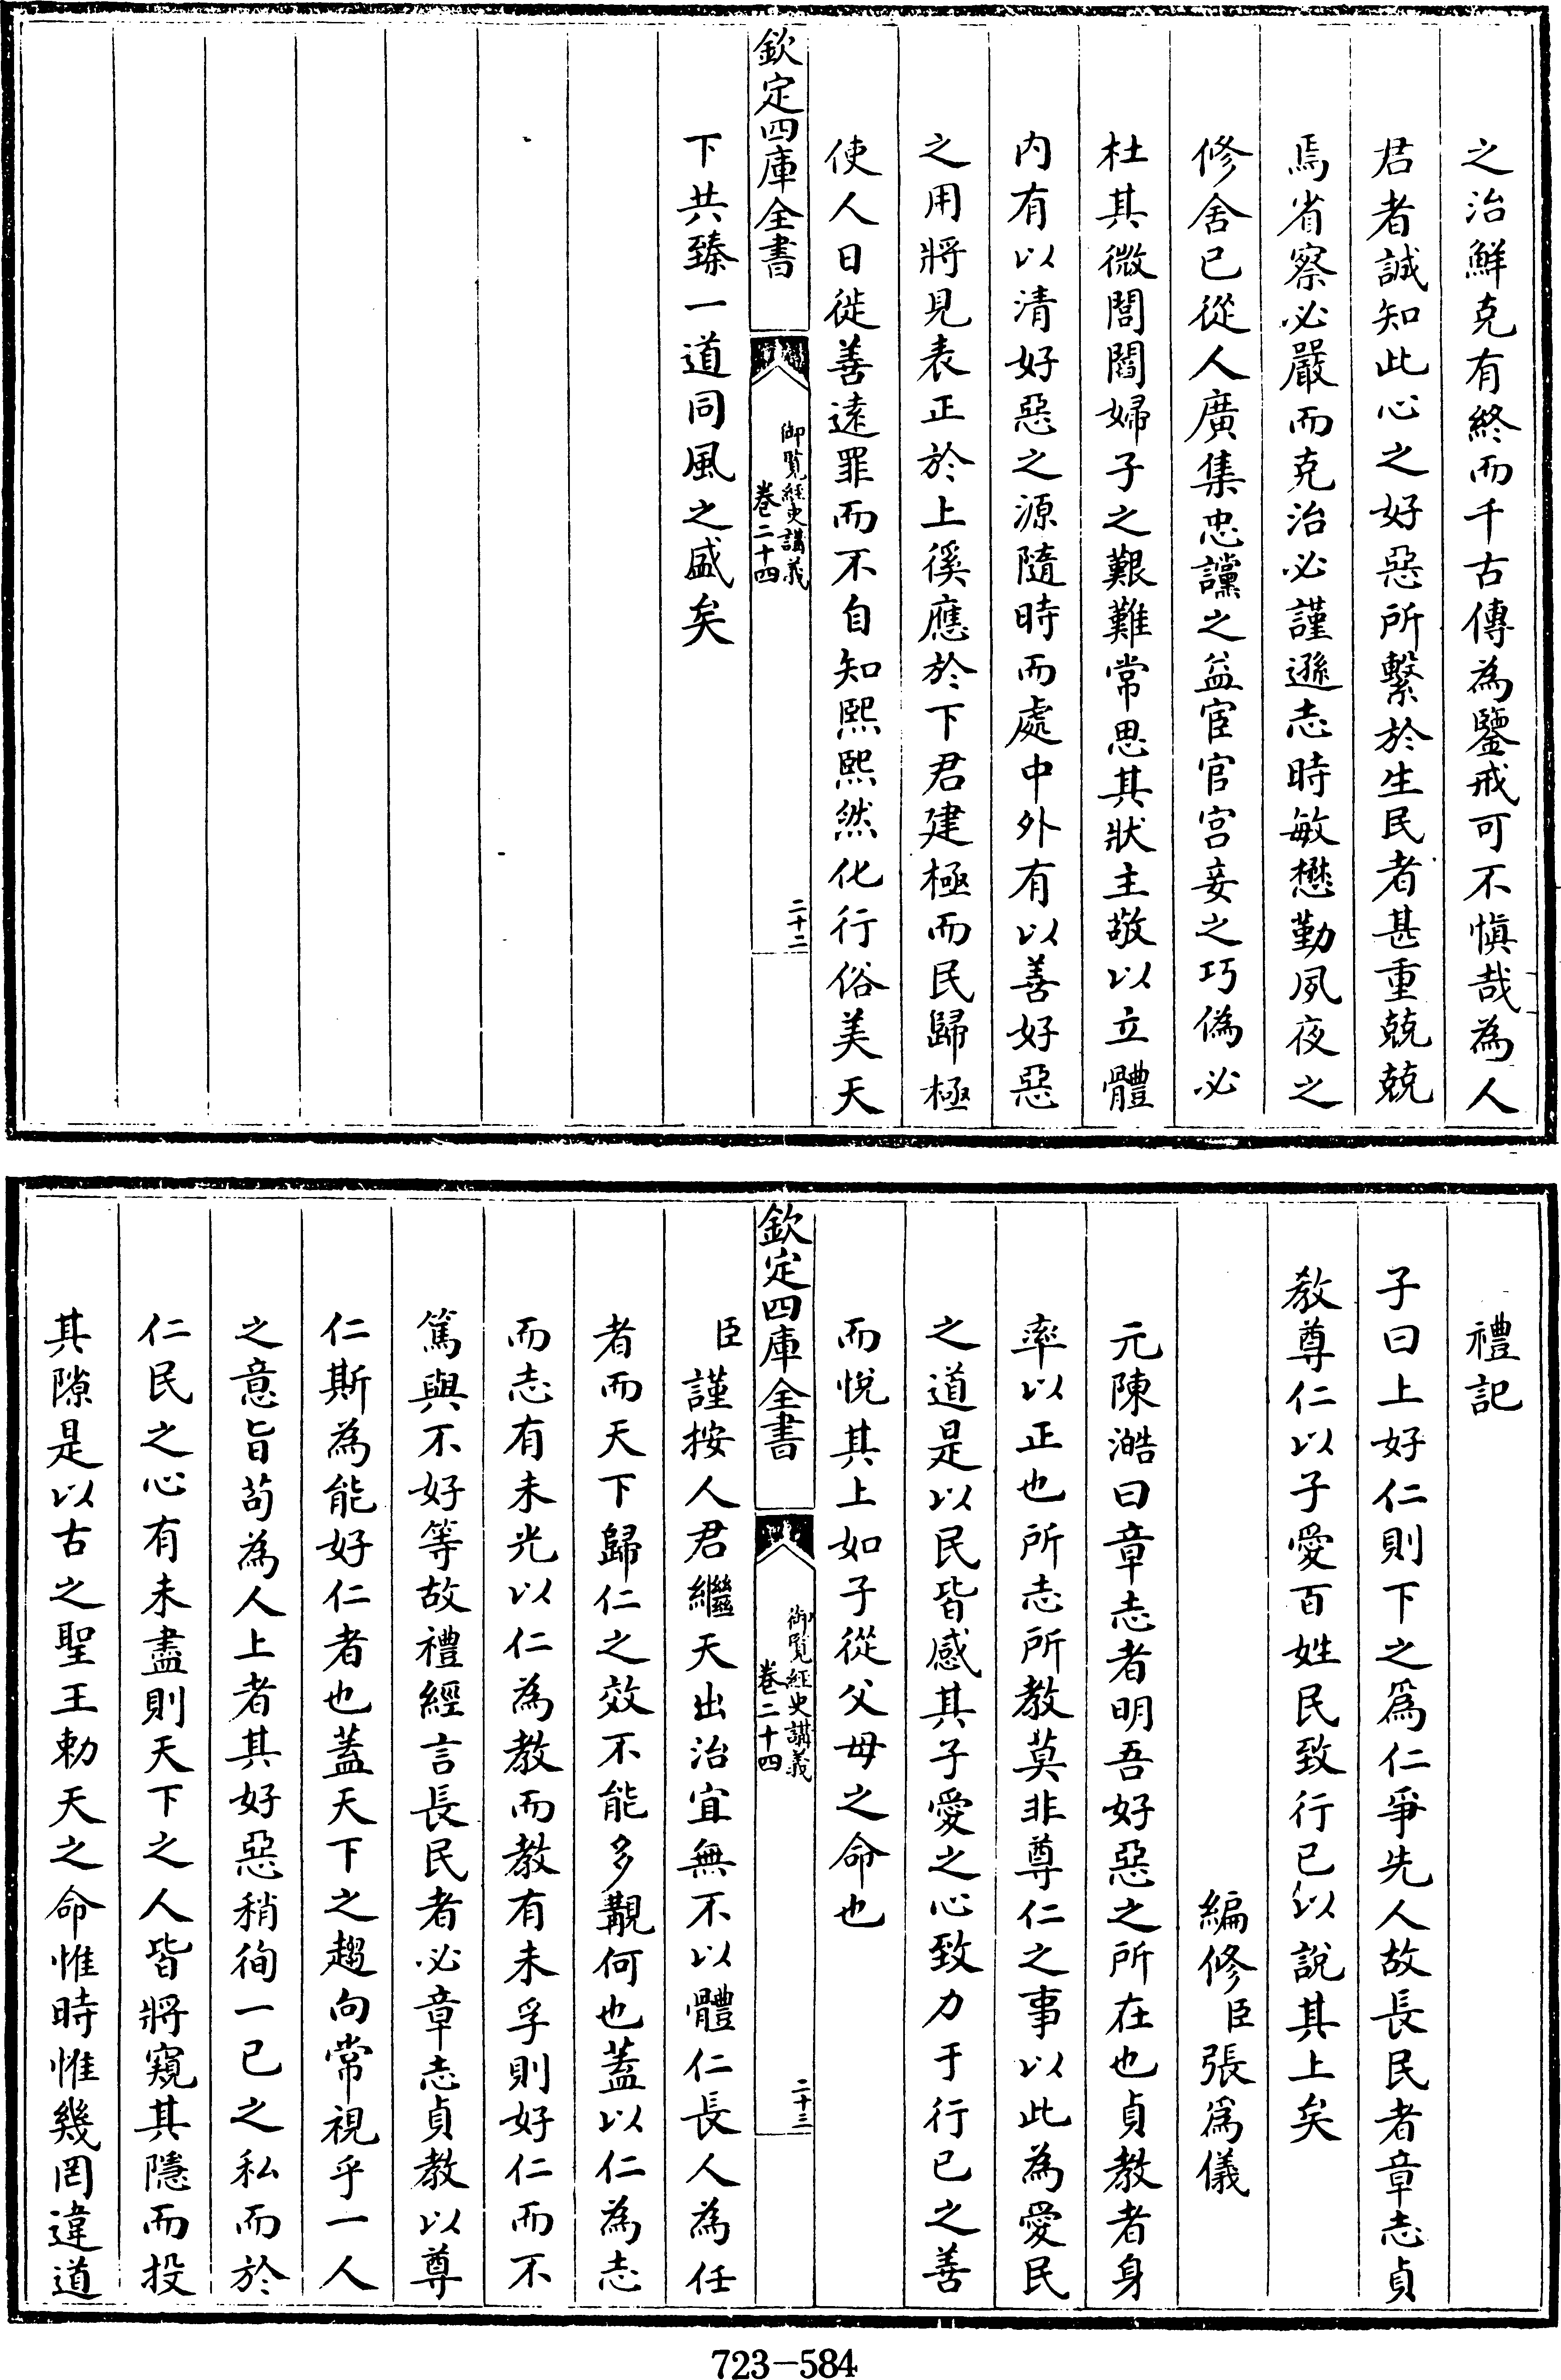 之治鮮克有終而千古傳為鑒戒可不慎哉為人
君者誠知此心之好惡所繫於生民者甚重兢兢
焉省察必嚴而克治必謹遜志時敏懋勤夙夜之
修舍已從人廣集忠讜之益宦官宫妾之巧偽必
杜其微閭閻婦子之艱難常思其狀主敬以立體
内有以清好惡之源隨時而處中外有以善好惡
之用將見表正於上徯應於下君建極而民歸極
使人日徙善逺罪而不自知熙熙然化行俗美天
欽定四庫全書
御覽經史講義
卷二十四
二十二
下共臻一道同風之盛矣
禮記
子曰上好仁則下之爲仁爭先人故長民者章志貞
教尊仁以子愛百姓民致行已以說其上矣
編修臣張爲儀
元陳澔曰章志者明吾好惡之所在也貞教者身
率以正也所志所教莫非尊仁之事以此為愛民
之道是以民皆感其子愛之心致力于行已之善
而悅其上如子從父母之命也
欽定四庫全書
御覽經史講義
卷二十四
二十三
臣謹按人君繼天出治宜無不以體仁長人為任
者而天下歸仁之效不能多覯何也蓋以仁為志
而志有未光以仁為教而教有未孚則好仁而不
篤與不好等故禮經言長民者必章志貞教以尊
仁斯為能好仁者也蓋天下之趨向常視乎一人
之意旨苟為人上者其好惡稍徇一已之私而於
仁民之心有未盡則天下之人皆將窺其隱而投
其隙是以古之聖王勅天之命惟時惟幾罔違道
723-584